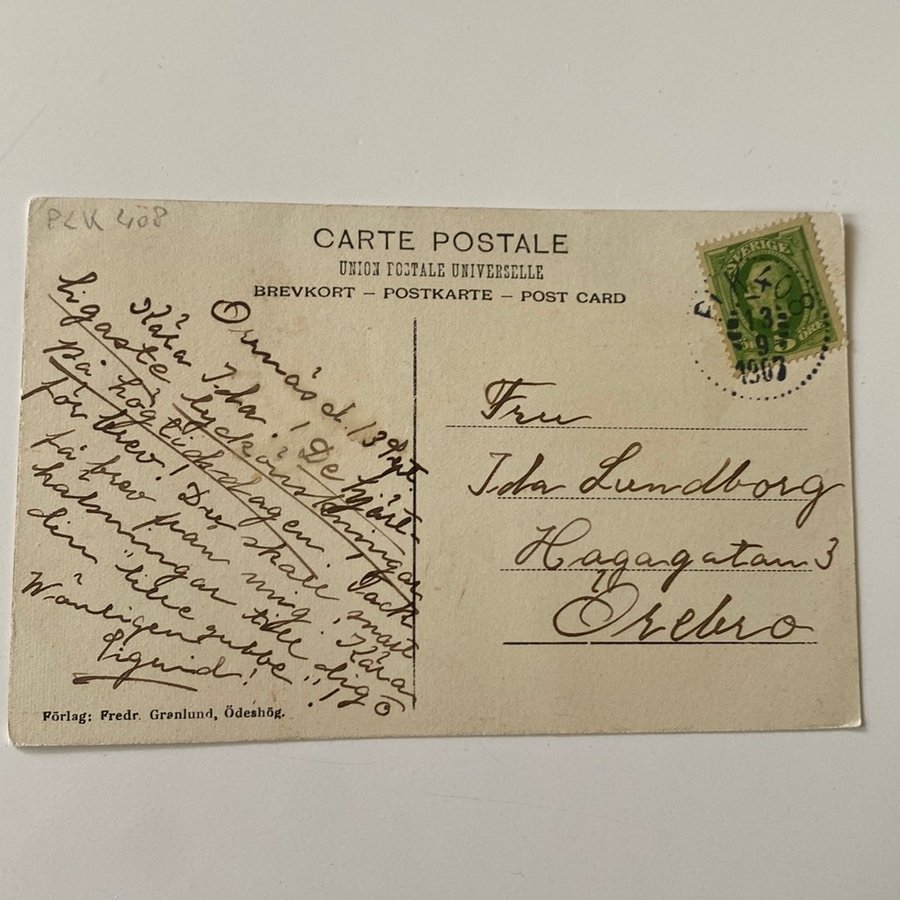 PLK 408
CARTE POSTALE
UNION POSTALE UNIVERSELLE
BREVKORT – POSTKARTE – POST CARD
SVERIGE
PLK 408
13
9
1907
d. 13 Sept.
Kära Ida! De hjärt-
ligaste lyckönskningar
på högtidsdagen! Tack
för brev! Du skall snart
få brev från mig! Kära
hälsningar till dig o
din "lille gubbe"!
Wänligen
Sigurd!
Förlag: Fredr. Grønlund, Ödeshög.
Fru
Ida Lundborg
Hagagatan 3
Örebro